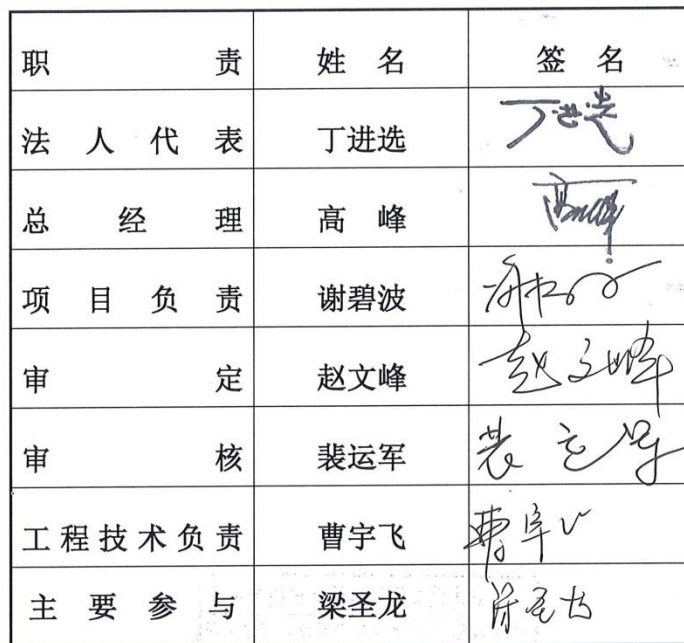 职责 姓名 签名
法人代表 丁进选 丁进选
总经理 高峰 高峰
项目负责 谢碧波
审定 赵文峰 赵文峰
审核 裴运军 裴运军
工程技术负责 曹宇飞 曹宇飞
主要参与 梁圣龙